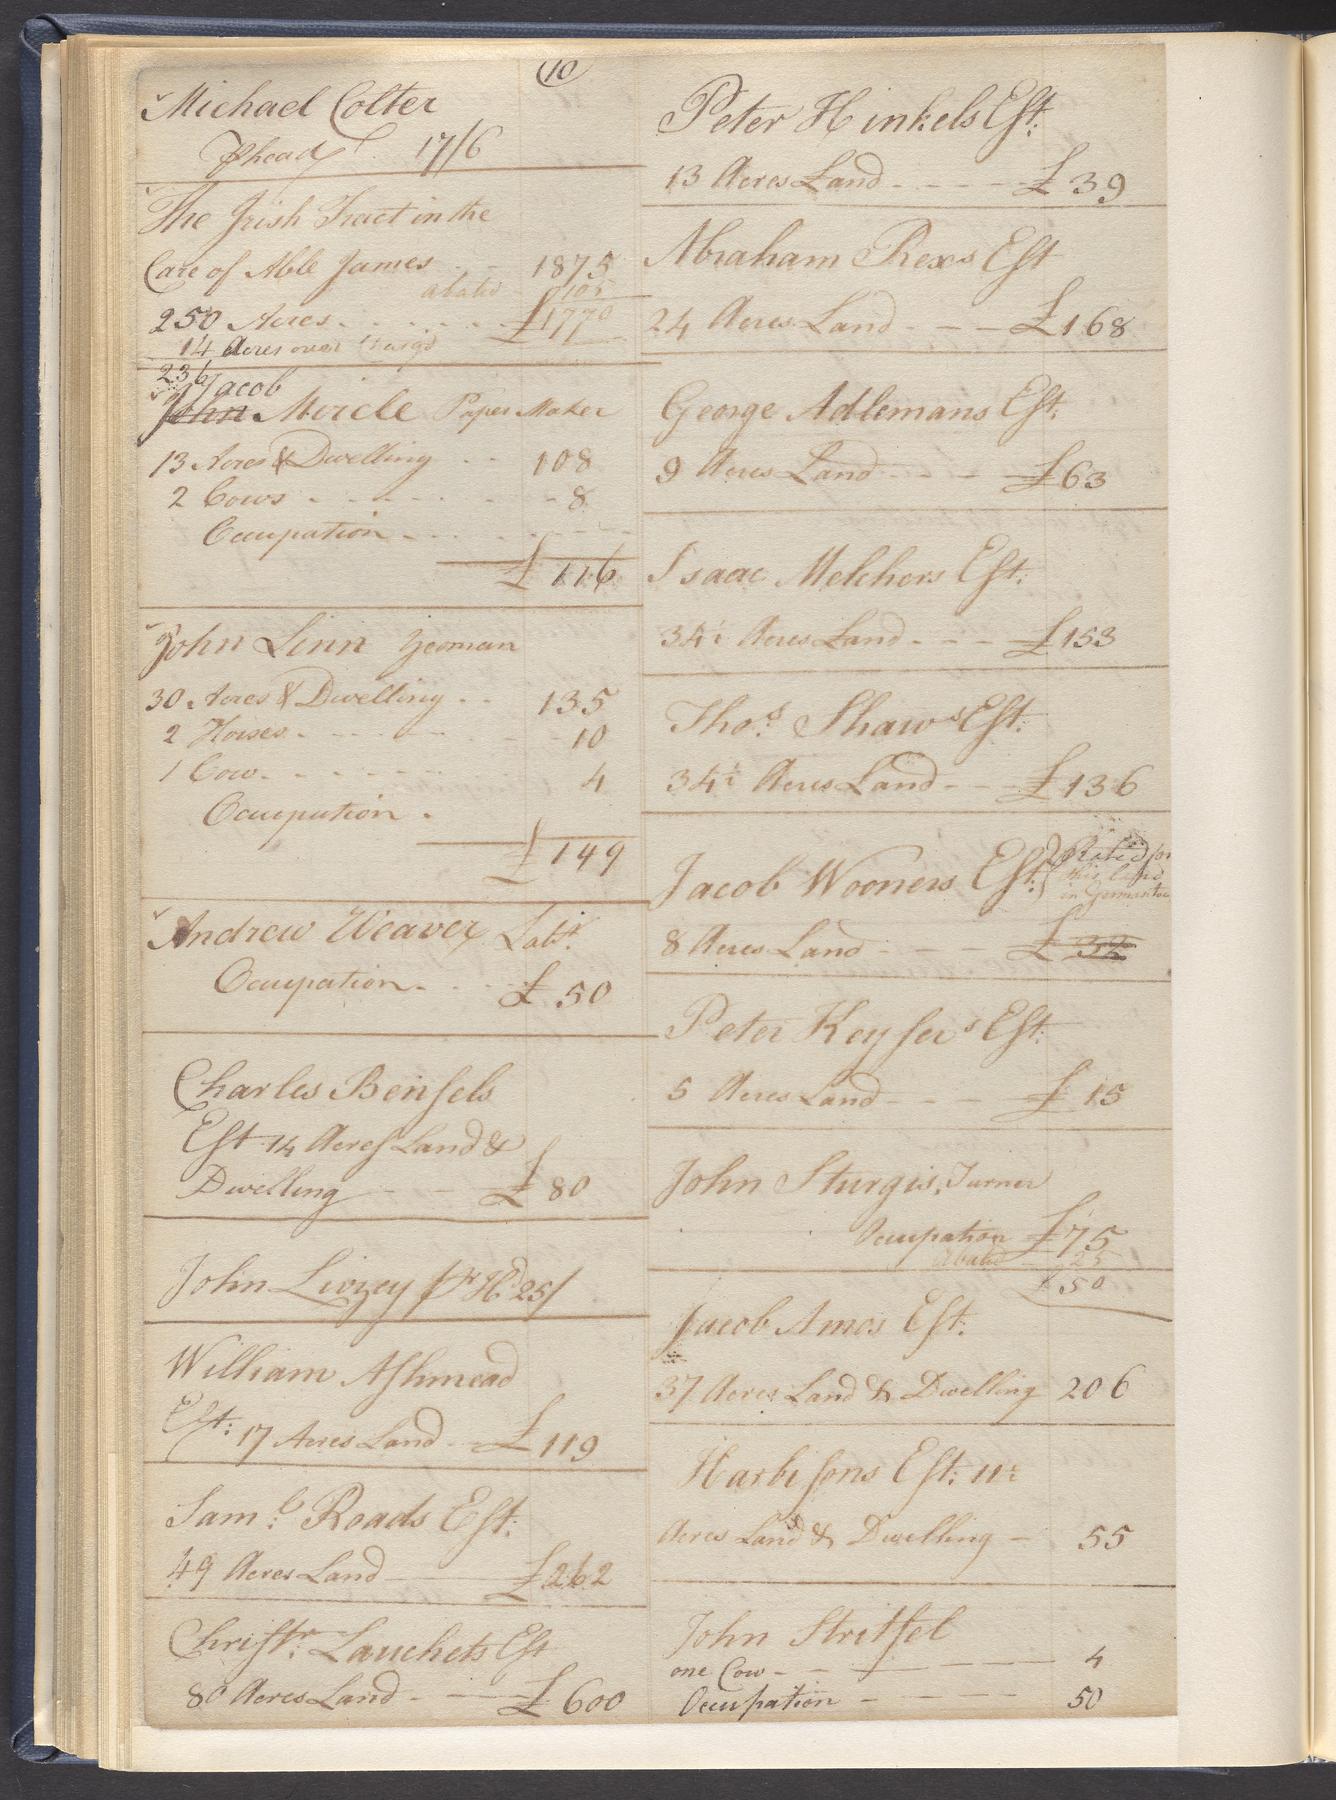 (10)
Michael Colter
P head 17/6
The Irish Tract in the
Care of Able James - - 1875
abated - 105
250 Acres - - - - £1770
14 Acres over Charged
236
Jacob
John Mircle Paper Maker
13 Acres & Dwelling - - 108
2 Cows - - - - - - 8
Occupation - - - -
£ 116
John Linn Yeoman
30 Acres & Dwelling - - 135
2 Horses - - - - - 10
1 Cow - - - - - 4
Occupation -
£ 149
Andrew Weaver Labr.
Occupation - - - £ 50
Charles Bensels
Est 14 Acres Land &
Dwelling - - £ 80
John Livzey Pr Hd 25/
William Ashmead
Est: 17 Acres Land - £ 119
Saml: Roads Est:
49 Acres Land £262
Christr: Lauchets Est
80 Acres Land - £ 600
Peter Hinkels Est:
13 Acres Land - - - - £ 39
Abraham Rexs Est
24 Acres Land - - - £168
George Adlemans Est:
9 Acres Land - - - £63
Isaac Melchors Est:
34½ Acres Land - - - £153
Thos: Shaws Est:
34½ Acres Land - - - £136
Jacob Wooners Est: { Rated for
this land
in Germantow
8 Acres Land - - £ 32
Peter Keysers Est:
5 Acres Land - - - £ 15
John Sturgis, Turner
Occupation £75
Abated - 25
£ 50
Jacob Amos Est:
37 Acres Land & Dwelling 206
Harbisons Est: 11½
Acres Land & Dwelling - 55
John Stritsel
one Cow - - - - - 4
Occupation - - - - 50